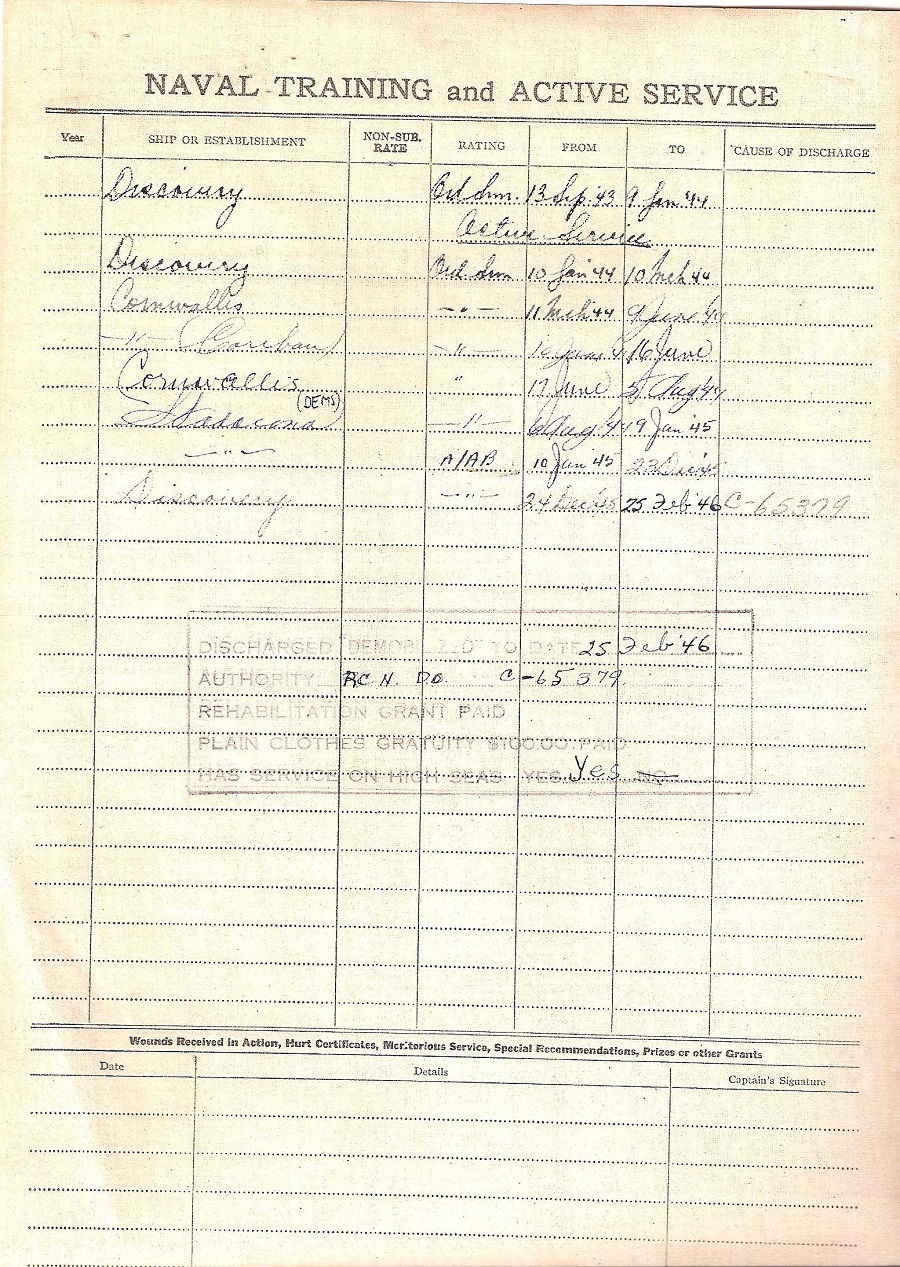 NAVAL TRAINING and ACTIVE SERVICE
Year SHIP OR ESTABLISHMENT NON-SUB. RATE RATING FROM TO CAUSE OF DISCHARGE
Discovery Ord Smn. 13 Sep. '43 9 Jan '44
Active Service
Discovery Ord Smn 10 Jan 44 10 Mch 44
Cornwallis —"— 11 Mch 44 9 June '44
—"— —"— 10 June 16 June
Cornwallis " 17 June 5 Aug '44
Stadacona (DEMS) —"— 6 Aug '44 9 Jan 45
—"— A/AB 10 Jan 45 23 Dec '45
Discovery —"— 24 Dec '45 25 Feb '46 C-65379
DISCHARGED "DEMOBILIZED" TO DATE 25 Feb '46
AUTHORITY R.C.N. D.O. C-65379
REHABILITATION GRANT PAID
PLAIN CLOTHES GRATUITY $100.00 PAID
HAS SERVICE ON HIGH SEAS YES Yes NO
Wounds Received in Action, Hurt Certificates, Meritorious Service, Special Recommendations, Prizes or other Grants
Date Details Captain's Signature